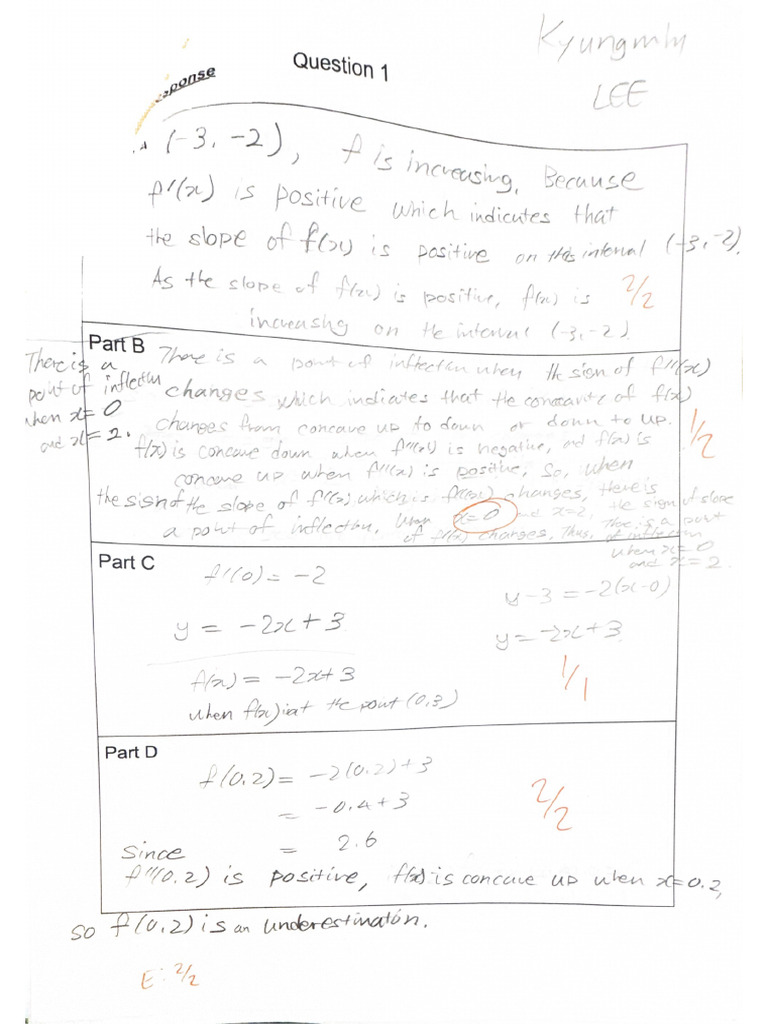 Question 1
Kyungmin
LEE
ponse
A (-3, -2), f is increasing, Because
f'(x) is positive which indicates that
the slope of f(x) is positive on this interval (-3, -2).
As the slope of f(x) is positive, f(x) is
increasing on the interval (-3, -2).
2/2
Part B
There is a
point of inflection
when x = 0
and x = 2.
There is a point of inflection when the sign of f''(x)
changes which indicates that the concavity of f(x)
changes from concave up to down or down to up.
f(x) is concave down when f''(x) is negative, and f(x) is
concave up when f''(x) is positive, So, when
the sign of the slope of f'(x) which is f''(x) changes, there is
a point of inflection, when x=0 and x=2, the sign of slope
of f'(x) changes, Thus, There is a point
of inflection
when x=0
and x=2.
1/2
Part C
f'(0) = -2
y = -2x + 3
f(x) = -2x+3
when f(x) is at the point (0,3)
y - 3 = -2(x-0)
y = -2x+3
1/1
Part D
f(0.2) = -2(0.2)+3
= -0.4+3
= 2.6
2/2
Since
f''(0.2) is positive, f(x) is concave up when x=0.2,
so f(0.2) is an underestimation.
E: 2/2